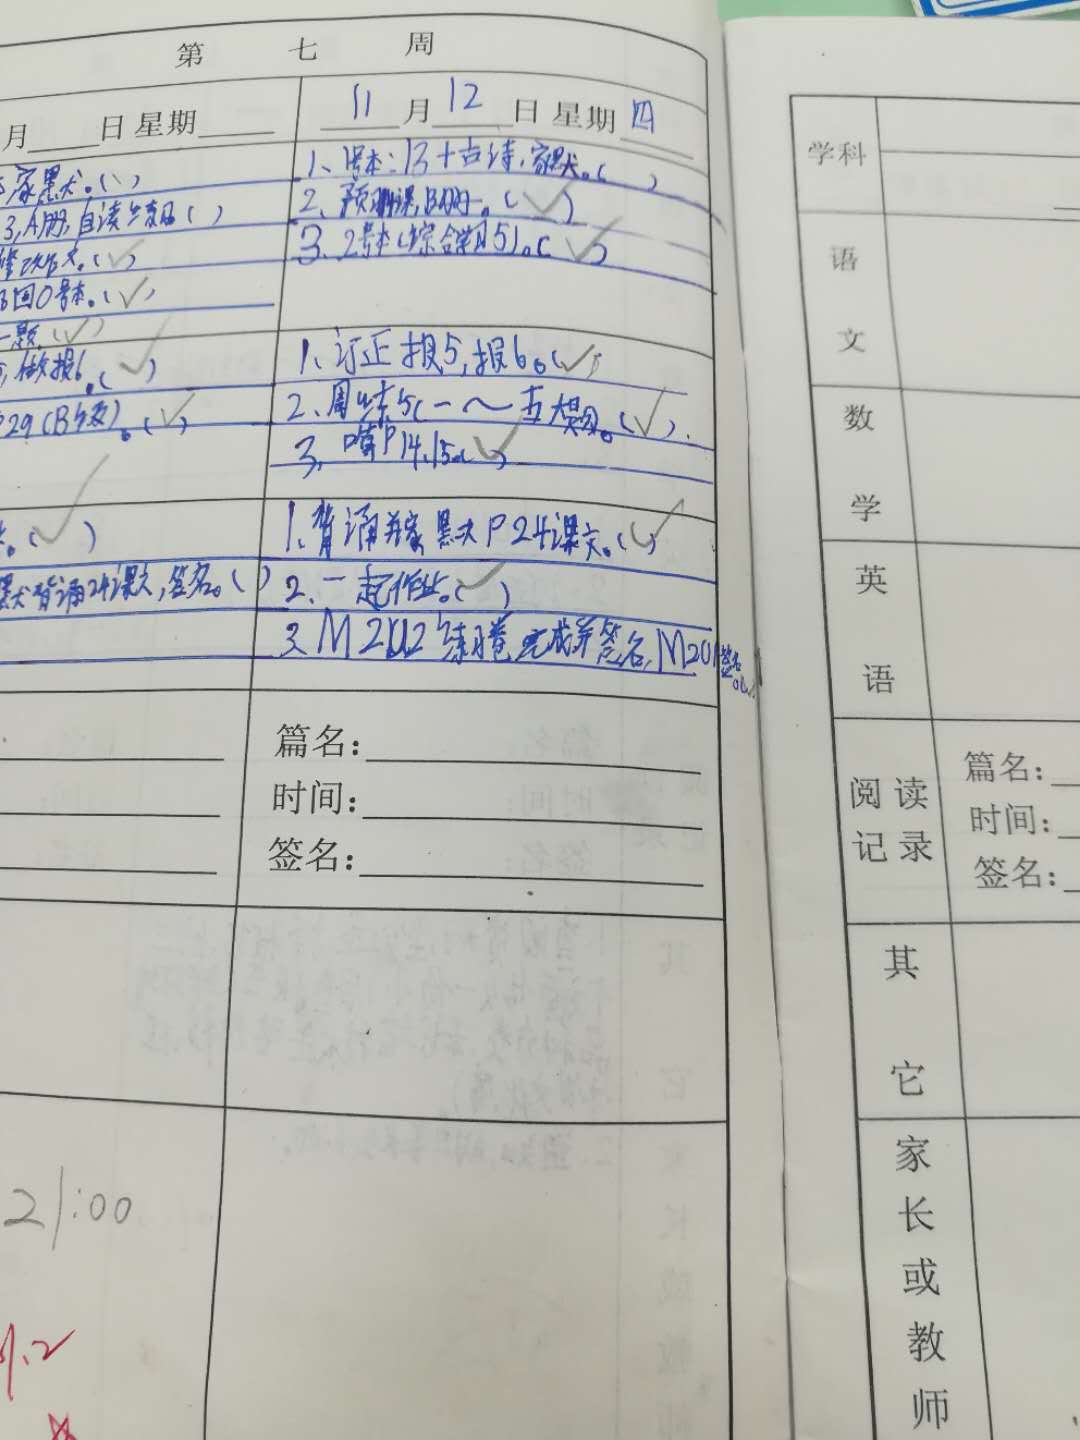 第 七 周
月 日 星期
家黑犬。( )
3, A册, 自读 ( )
修改作文。(✓)
0号本。(✓)
一题(✓)
做报6。(✓)
P29(B级)。(✓)
。(✓)
背诵24课文,签名。( )
21:00
11 月 12 日 星期 四
1、1号本:13+古诗,家黑犬。( )
2、预 课,B册。(✓)
3、2号本(综合 5)。(✓)
1、订正报5,报6。(✓)
2、周练5(一~五大题)。(✓).
3、 P14、15。(✓)
1、背诵并家黑犬P24课文。(✓)
2、一起作业。(✓)
3、M2U2练习卷完成并签名,M2U1签名。(✓)
篇名:
时间:
签名:
学科
语
文
数
学
英
语
阅 读
记 录
篇名:
时间:
签名:
其
它
家
长
或
教
师